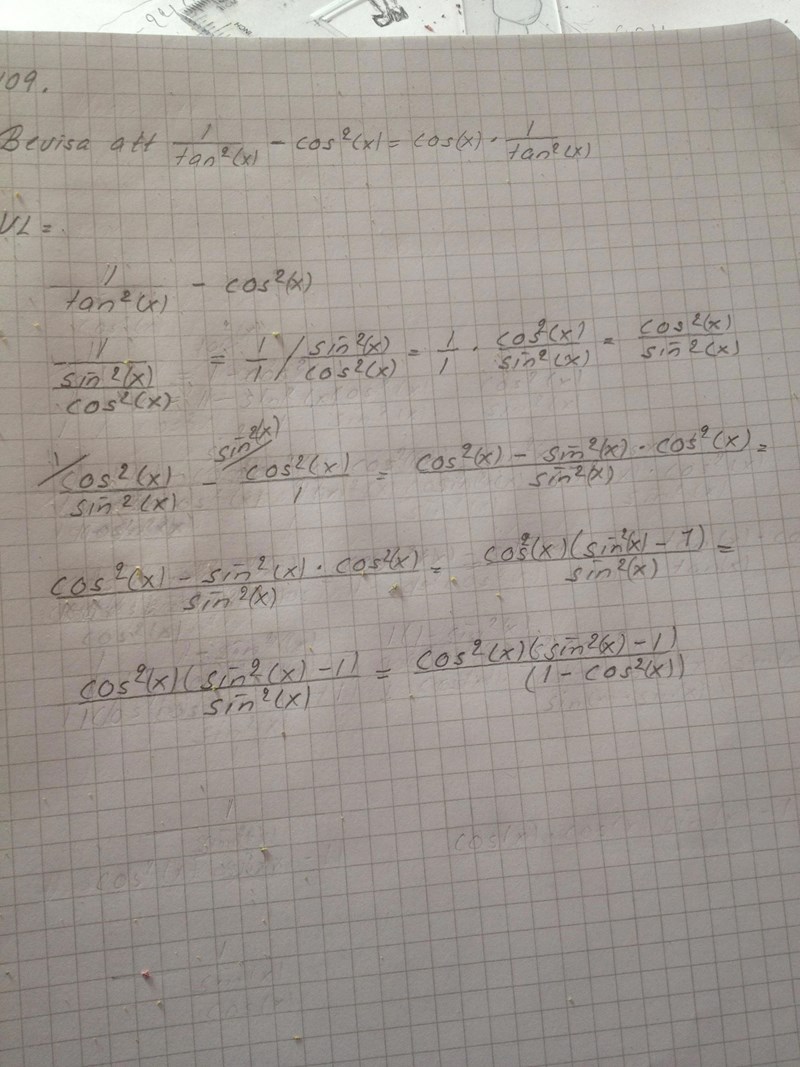 109.
Bevisa att 1/tan²(x) - cos²(x) = cos(x) · 1/tan²(x)
VL =
1/tan²(x) - cos²(x)
1/(sin²(x)/cos²(x)) = 1/1 / sin²(x)/cos²(x) = 1/1 · cos²(x)/sin²(x) = cos²(x)/sin²(x)
1/ cos²(x)/sin²(x) - sin²(x)/ cos²(x)/1 = (cos²(x) - sin²(x) · cos²(x))/sin²(x) =
(cos²(x) - sin²(x) · cos²(x))/sin²(x) = cos²(x)(sin²(x) - 1)/sin²(x) =
cos²(x)(sin²(x) - 1)/sin²(x) = cos²(x)(sin²(x) - 1)/(1 - cos²(x))